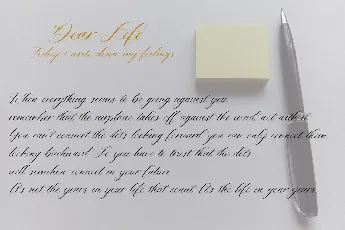 Dear Life
Today i write down my feelings
When everything seems to be going against you,
remember that the airplane takes off against the wind, not with it
You can't connect the dots looking forward you can only connect them
looking backward. So you have to trust that the dots
will somehow connect in your future.
It's not the years in your life that count. It's the life in your years.